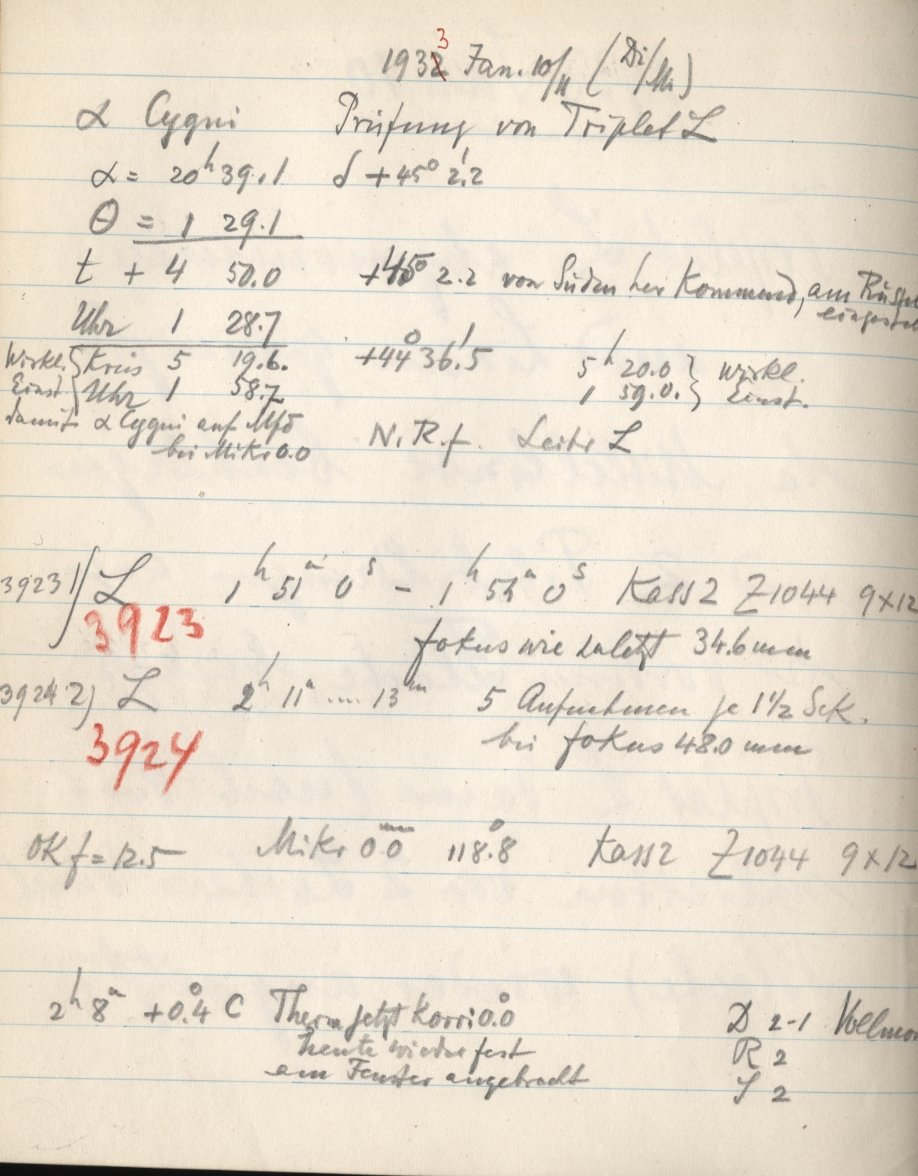 1933 Jan. 10/11 (Di/Mi)
α Cygni Prüfung von Triplet L
α = 20ʰ 39.1 δ +45° 2.'2
Θ = 1 29.1
t + 4 50.0 +45° 2.2 von Süden her Kommend, am
Uhr 1 28.7
Wirkl. Einst. } Kreis 5 19.6. +44° 36.'5 5ʰ 20.0 } wirkl.
Uhr 1 58.7 1 59.0. } Einst.
damit α Cygni auf
bei Mikr 0.0 N.R.f. Leitr L
3923 1) L 1ʰ 51ᵐ 0ˢ - 1ʰ 54ᵐ 0ˢ Kass 2 Z1044 9x12
3923 fokus wie zuletzt 34.6 mm
3924 2) L 2ʰ 11ᵐ .... 13ᵐ 5 Aufnahmen je 1½ Sek.
3924 bei fokus 48.0 mm
OK f = 12.5 Mikr 0.0 118.°8 Kass 2 Z1044 9x12
2ʰ 8ᵐ +0.°4 C Therm jetzt Korr 0.°0 D 2-1
heute wieder fest R 2
am Fenster angebracht S 2